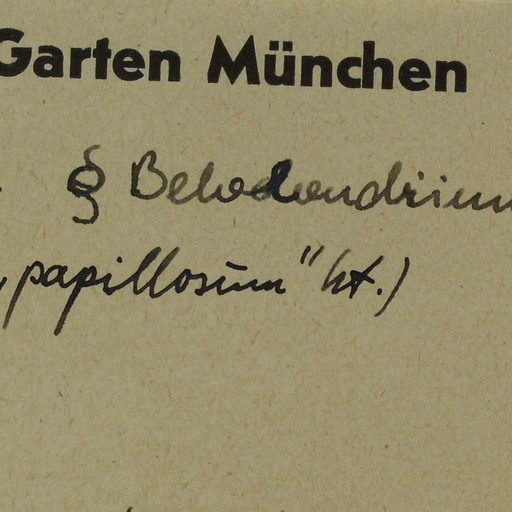 Garten München
§ Belodendrium
„papillosum" ht.)